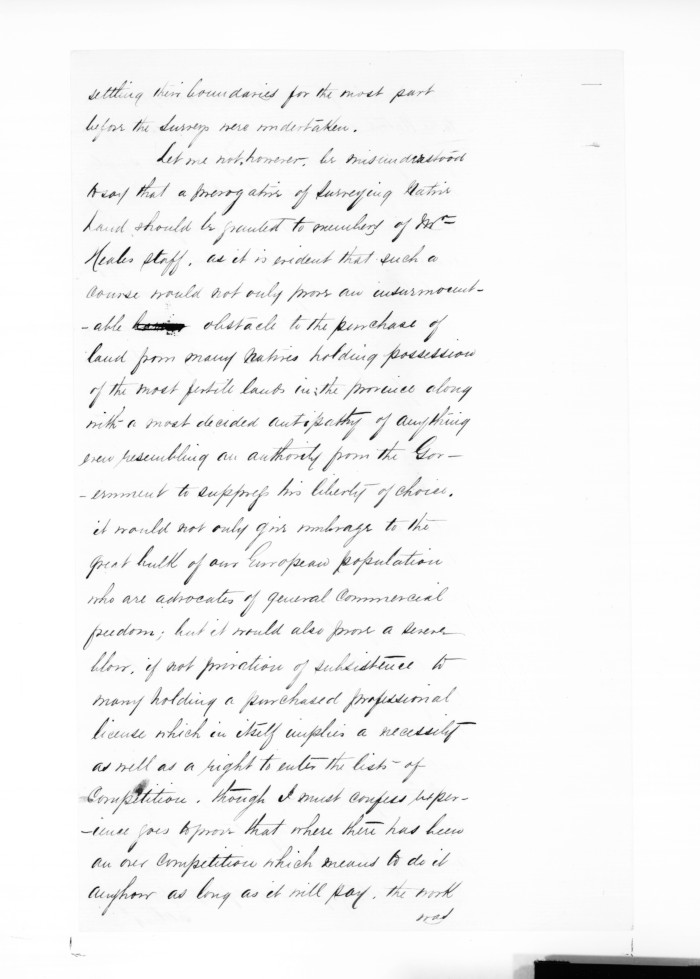 settling their boundaries for the most part
before the Surveys were undertaken.
Let me not, however, be misunderstood
to say that a prerogative of Surveying Native
Land should be granted to members of Mr
Heales staff, as it is evident that such a
course would not only prove an insurmount-
-able obstacle to the purchase of
land from many Natives holding possession
of the most fertile lands in the province along
with a most decided antipathy of anything
even resembling an authority from the Gov-
-ernment to suppress his liberty of choice,
it would not only give umbrage to the
great bulk of our European population
who are advocates of general Commercial
freedom; but it would also prove a severe
blow, if not privation of subsistence to
many holding a purchased professional
license which in itself implies a necessity
as well as a right to enter the lists of
Competition, though I must confess exper-
-ience goes to prove that where there has been
an over competition which means to do it
anyhow as long as it will pay, the work
was